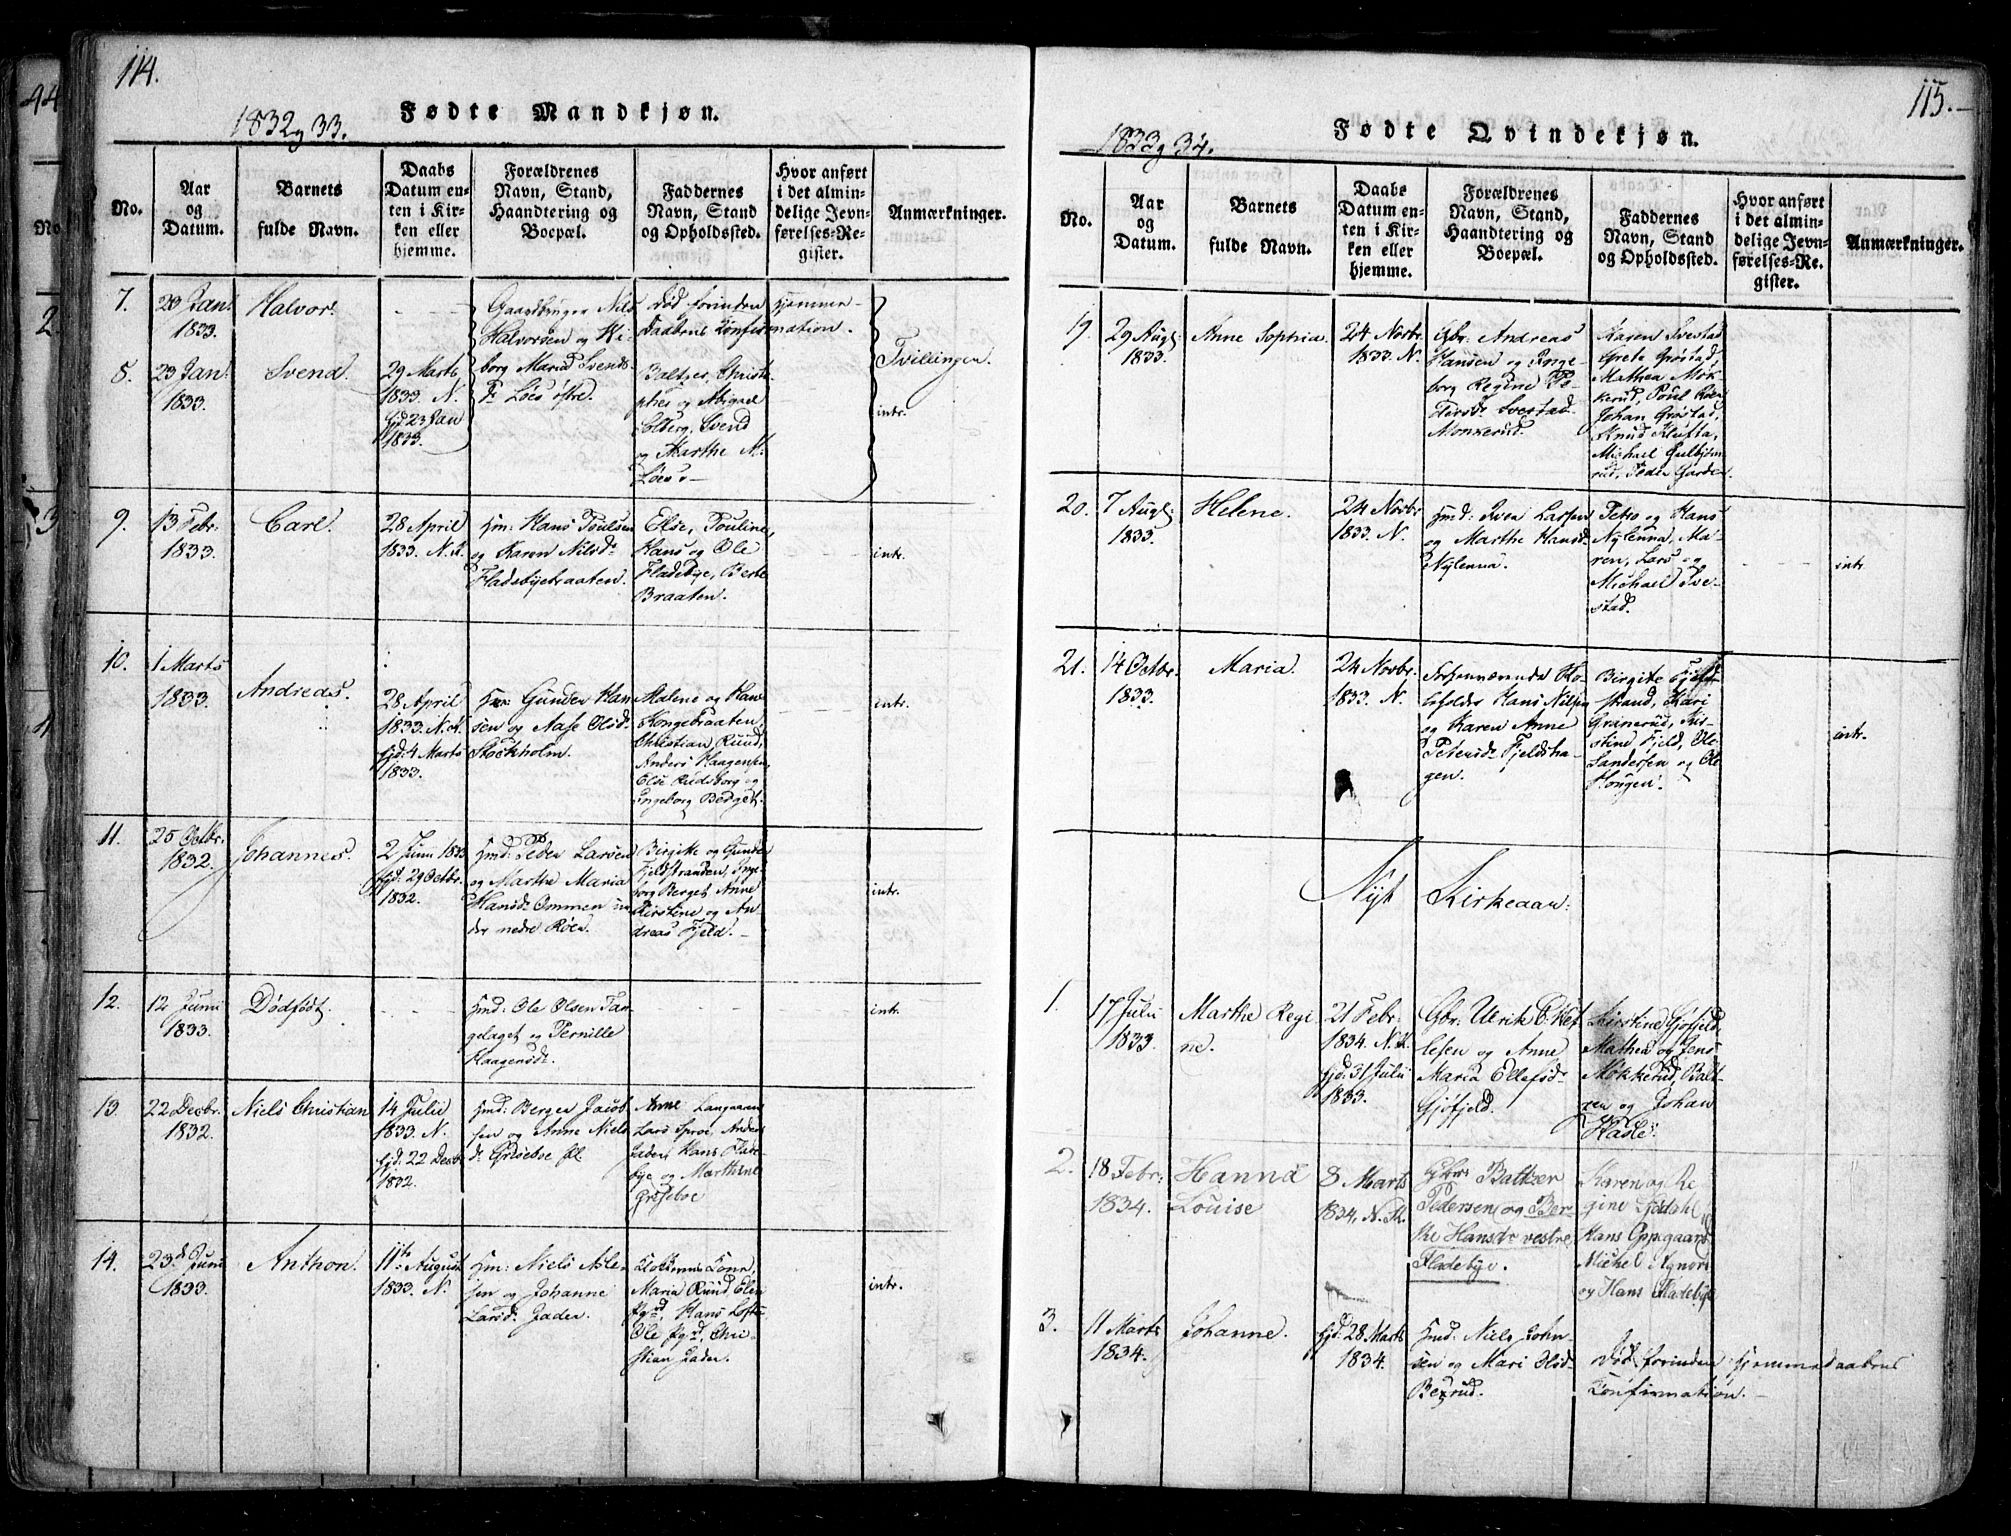 114.
1832 og 33.
Fødte Mandkjøn.
No.
Aar og Datum.
Barnets fulde Navn.
Daabs Datum enten i Kirken eller hjemme.
Forældrenes Navn, Stand, Haandtering og Boepæl.
Faddernes Navn, Stand og Opholdssted.
Hvor anført i det almindelige Jevnførelses-Register.
Anmærkninger.
7.
23 Jan:
1833.
Halvor.
Gaardbruger Nils
Halvorsen og
borg Marie Svends
Død forinden Hjemme-
daabens Confirmation.
8.
23 Jan:
1833.
Svend.
29 Marts
1833. N.
hjd: 23 Jan
1833.
Baltzer, Christo-
pher og Abigael
Solberg, Svend
og Marthe N.
Tvillinger.
intr.
9.
13 Febr.
1833.
Carl.
28 April
1833. N.K.
Hm: Hans Poulsen
og Karen Nilsd:
Fladebyebraaten.
Else, Pouline,
Hans og Ole
Fladebye, Berte
Braaten.
intr.
10.
1 Marts
1833.
Andreas.
28 April
1833. N.K.
hjd: 4 Marts
1833.
Hm: Gunder Han
sen og Aase Olsd:
Stockholm.
Malene og Hans
Kongebraaten,
Christian Ruud,
Anders Haagensen,
Else Rudsborg og
Ingeborg Berget.
intr.
11.
25 Octbr.
1832.
Johannes.
2 Junii 1833
hjd: 29 Octbr.
1832.
Hmd: Peder Larsen
og Marthe Maria
Hansd: Ommen un
der nedre Röer.
Birgitte og Gunder
Fjeldstranden, Inge
borg Berget, Anne
Kirstine og An-
dreas Fjeld.
intr.
12.
12 Junii
1833.
Dødfødt.
Hmd: Ole Olsen Tan
gelaget og Pernille
Haagensd:
intr.
13.
22 Decbr.
1832.
Niels Christian
14 Julii
1833. N.
hjd: 22 Decbr
1832.
Hmd: Berger Jacob
sen og Anne Niels
d: Griseboe
Anne Langaaen
Lars Sproe, Anders
Jader, Hans Flade-
bye og Marthine
Griseboe
14.
23d Junii
1833.
Anthon.
11te August
1833. N.
Hm: Niels Asle-
sen og Johanne
Larsd: Jader.
Maria Ruud, Elen
Hans
Ole Chri-
stian Jader.
intr.
115.
1833 og 34.
Fødte Qvindekjøn.
No.
Aar og Datum.
Barnets fulde Navn.
Daabs Datum enten i Kirken eller hjemme.
Forældrenes Navn, Stand, Haandtering og Boepæl.
Faddernes Navn, Stand og Opholdssted.
Hvor anført i det almindelige Jevnførelses-Register.
Anmærkninger.
19.
29 Aug:
1833.
Anne Sophia.
24 Novbr.
1833. N.
Gbr: Andreas
Hansen og Borge-
borg Regine Pe-
tersd: Svestad
Monkerud.
Karen Svestad
Grete Grøstad,
Mathea Mök-
kerud, Poul Röer
Johan Grøstad,
Knud Klufta,
Michael Gulbjörn
rud, Peder Garder
20.
7 Aug:
1833.
Helene.
24 Novbr
1833. N.
Hmd: Iver Larsen
og Marthe Hansd:
Nylenna.
Petro og Hans
Nylenna, Ma-
ren, Lars og
Michael Sve-
stad.
intr.
21.
14 Octbr.
1833.
Maria.
24 Novbr.
1833. N.
Hans Nilsen
og Karen Anne
Petersd: Fjeldsha-
gen.
Birgite Fjeld-
strand, Kari
Granerud, Kir-
stine Fjeld, Ole
Sandersen og Ole
Hougen.
intr.
Nyt Kirkeaar:
1.
17 Julii
1833.
Marthe Regi
ne.
21 Febr.
1834. N.K.
hjd: 31 Julii
1833.
Gbr: Ulrik E
lesen og Anne
Maria Ellefsd:
Gjöfjeld.
Kirstine Gjöfjeld,
Mathea og Jens
Mökkerud, Balt-
zer og Johan
Hasle.
2.
18 Febr:
1834.
Hanna
Louise
8 Marts
1834, N.K.
Gbr: Baltzer
Pedersen og Ber-
the Hansdr vestre
Fladebye.
Karen og Re
gine Lysdahl
Hans Oppegaard
Michel Agnor
og Hans Fladebye
3.
11 Marts
1834.
Johanne.
hjd: 28 Marts
1834.
Hmd: Niels John-
sen og Mari Olsd:
Bexrud.
Død forinden Hjemmedaabens
Confirmation.